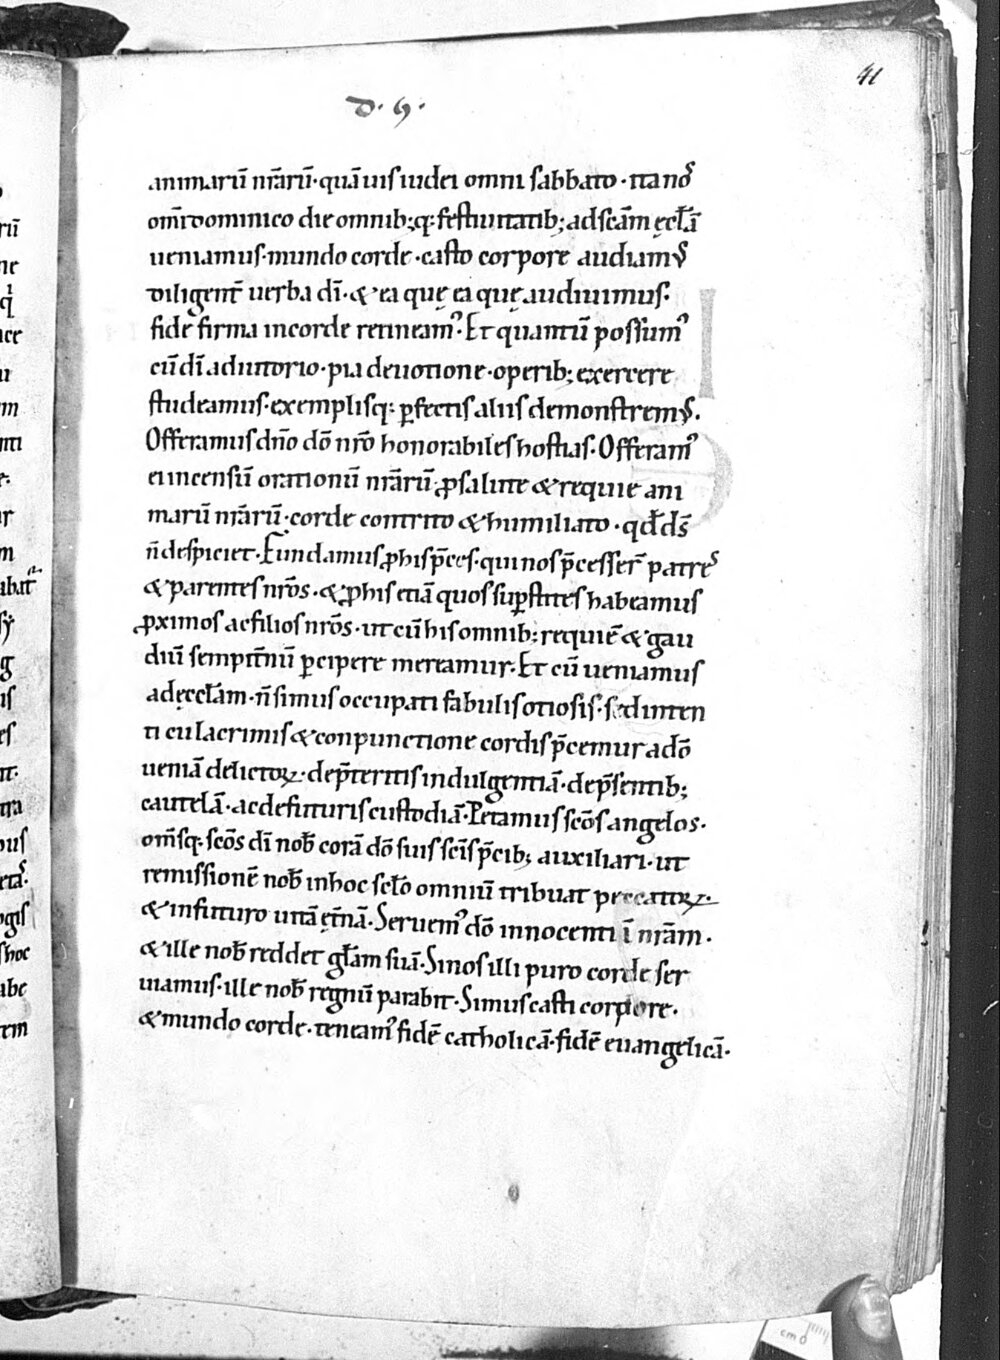 41
d. 9.
animarū nr̄arū. quā uis iudei omni sabbato. ita nos
om̄i dominico die omnib; q: festiuitatib; ad sc̄am ęccl̄ā
ueniamus. mundo corde. casto corpore audiamus
diligent̄ uerba dī. & ea quę ea quę audiuimus.
fide firma in corde retineam᾿. Et quantū possum᾿
cū dī adiutorio. pia deuotione. operib; exercere
studeamus. exemplisq: ꝑfectis aliis demonstremus.
Offeramus dn̄o dō nr̄o honorabiles hostias. Offeram᾿
ei incensū orationū nr̄arū. ꝓ salute & requie ani
marū nr̄arū. corde contrito & humiliato. qđ ds̄
n̄ despiciet. Fundamus ꝓ his p̄ces. qui nos p̄cesser̄ patres
& parentes nr̄os. & ꝓ his etiā quos suꝑstites habeamus
ꝓximos ac filios nr̄os. ut cū his omnib; requiē & gau
diū sempit̄nū ꝑcipere mereamur. Et cū ueniamus
ad ęccl̄am. n̄ simus occupati fabulis otiosis. sed inten
ti cu lacrimis & conpunctione cordis p̄cemur ad dō
ueniā delictoꝝ. de p̄teritis indulgentiā. de p̄sentib;
cautelā. ac de futuris custodiā. Petamus sc̄os angelos.
om̄sq: sc̄os dī nob̄ corā dō suis sc̄is p̄cib; auxiliari. ut
remissionē nob̄ in hoc scl̄o omniū tribuat peccatoꝝ.
& in futuro uitā ęt̄nā. Seruem᾿ dō innocentiā nr̄am.
& ille nob̄ reddet gl̄am suā. Si nos illi puro corde ser
uiamus. ille nob̄ regnū parabit. Simus casti corpore.
& mundo corde. teneam᾿ fidē catholicā. fidē euangelicā.